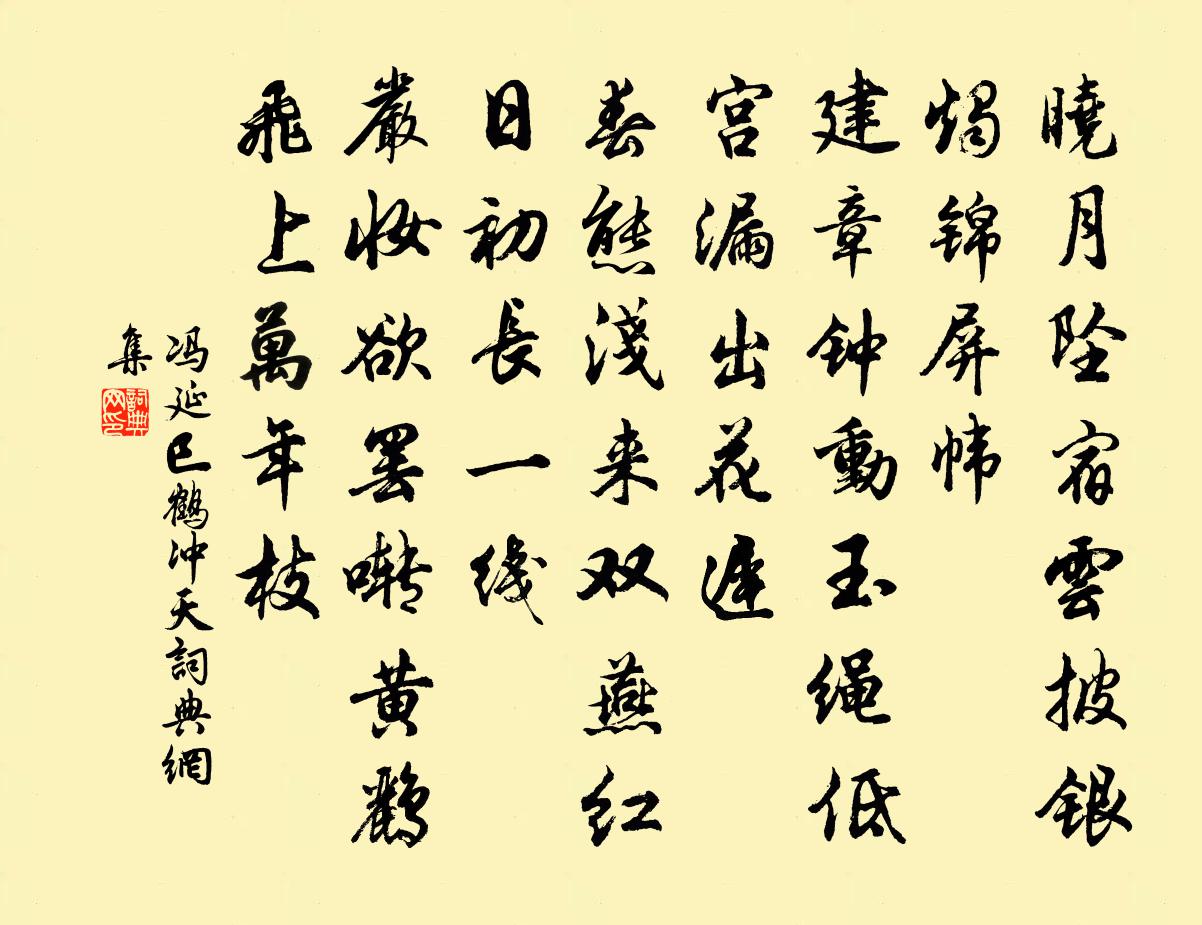 曉月坠宿雲披银
燭锦屏帏
建章钟動玉绳低
宫漏出花遲
春態淺来双燕红
日初長一线
嚴妆欲罢啭黄鹂
飛上萬年枝
冯延巳鶴冲天詞典網
集
詞典网印